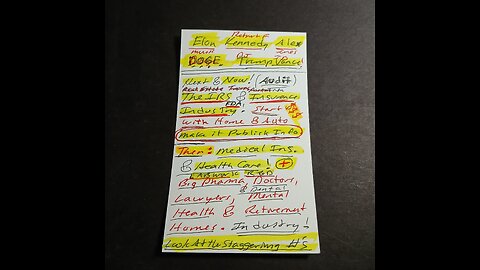 Return of
Elon Kennedy Alex
musk Jones
DOGE. Trump Vance
Next & Now! (Audit)
Real Estate
The IRS & Insurance
FDA
Industry. Start
with Home & Auto
make it Publick Info
Then: medical Ins.
& Health Care! +
Network R&D
Big Pharma, Doctors,
& Dental
Lawyers, Mental
Health & Retirement
Homes. Industry!
Look At the Staggering #'s